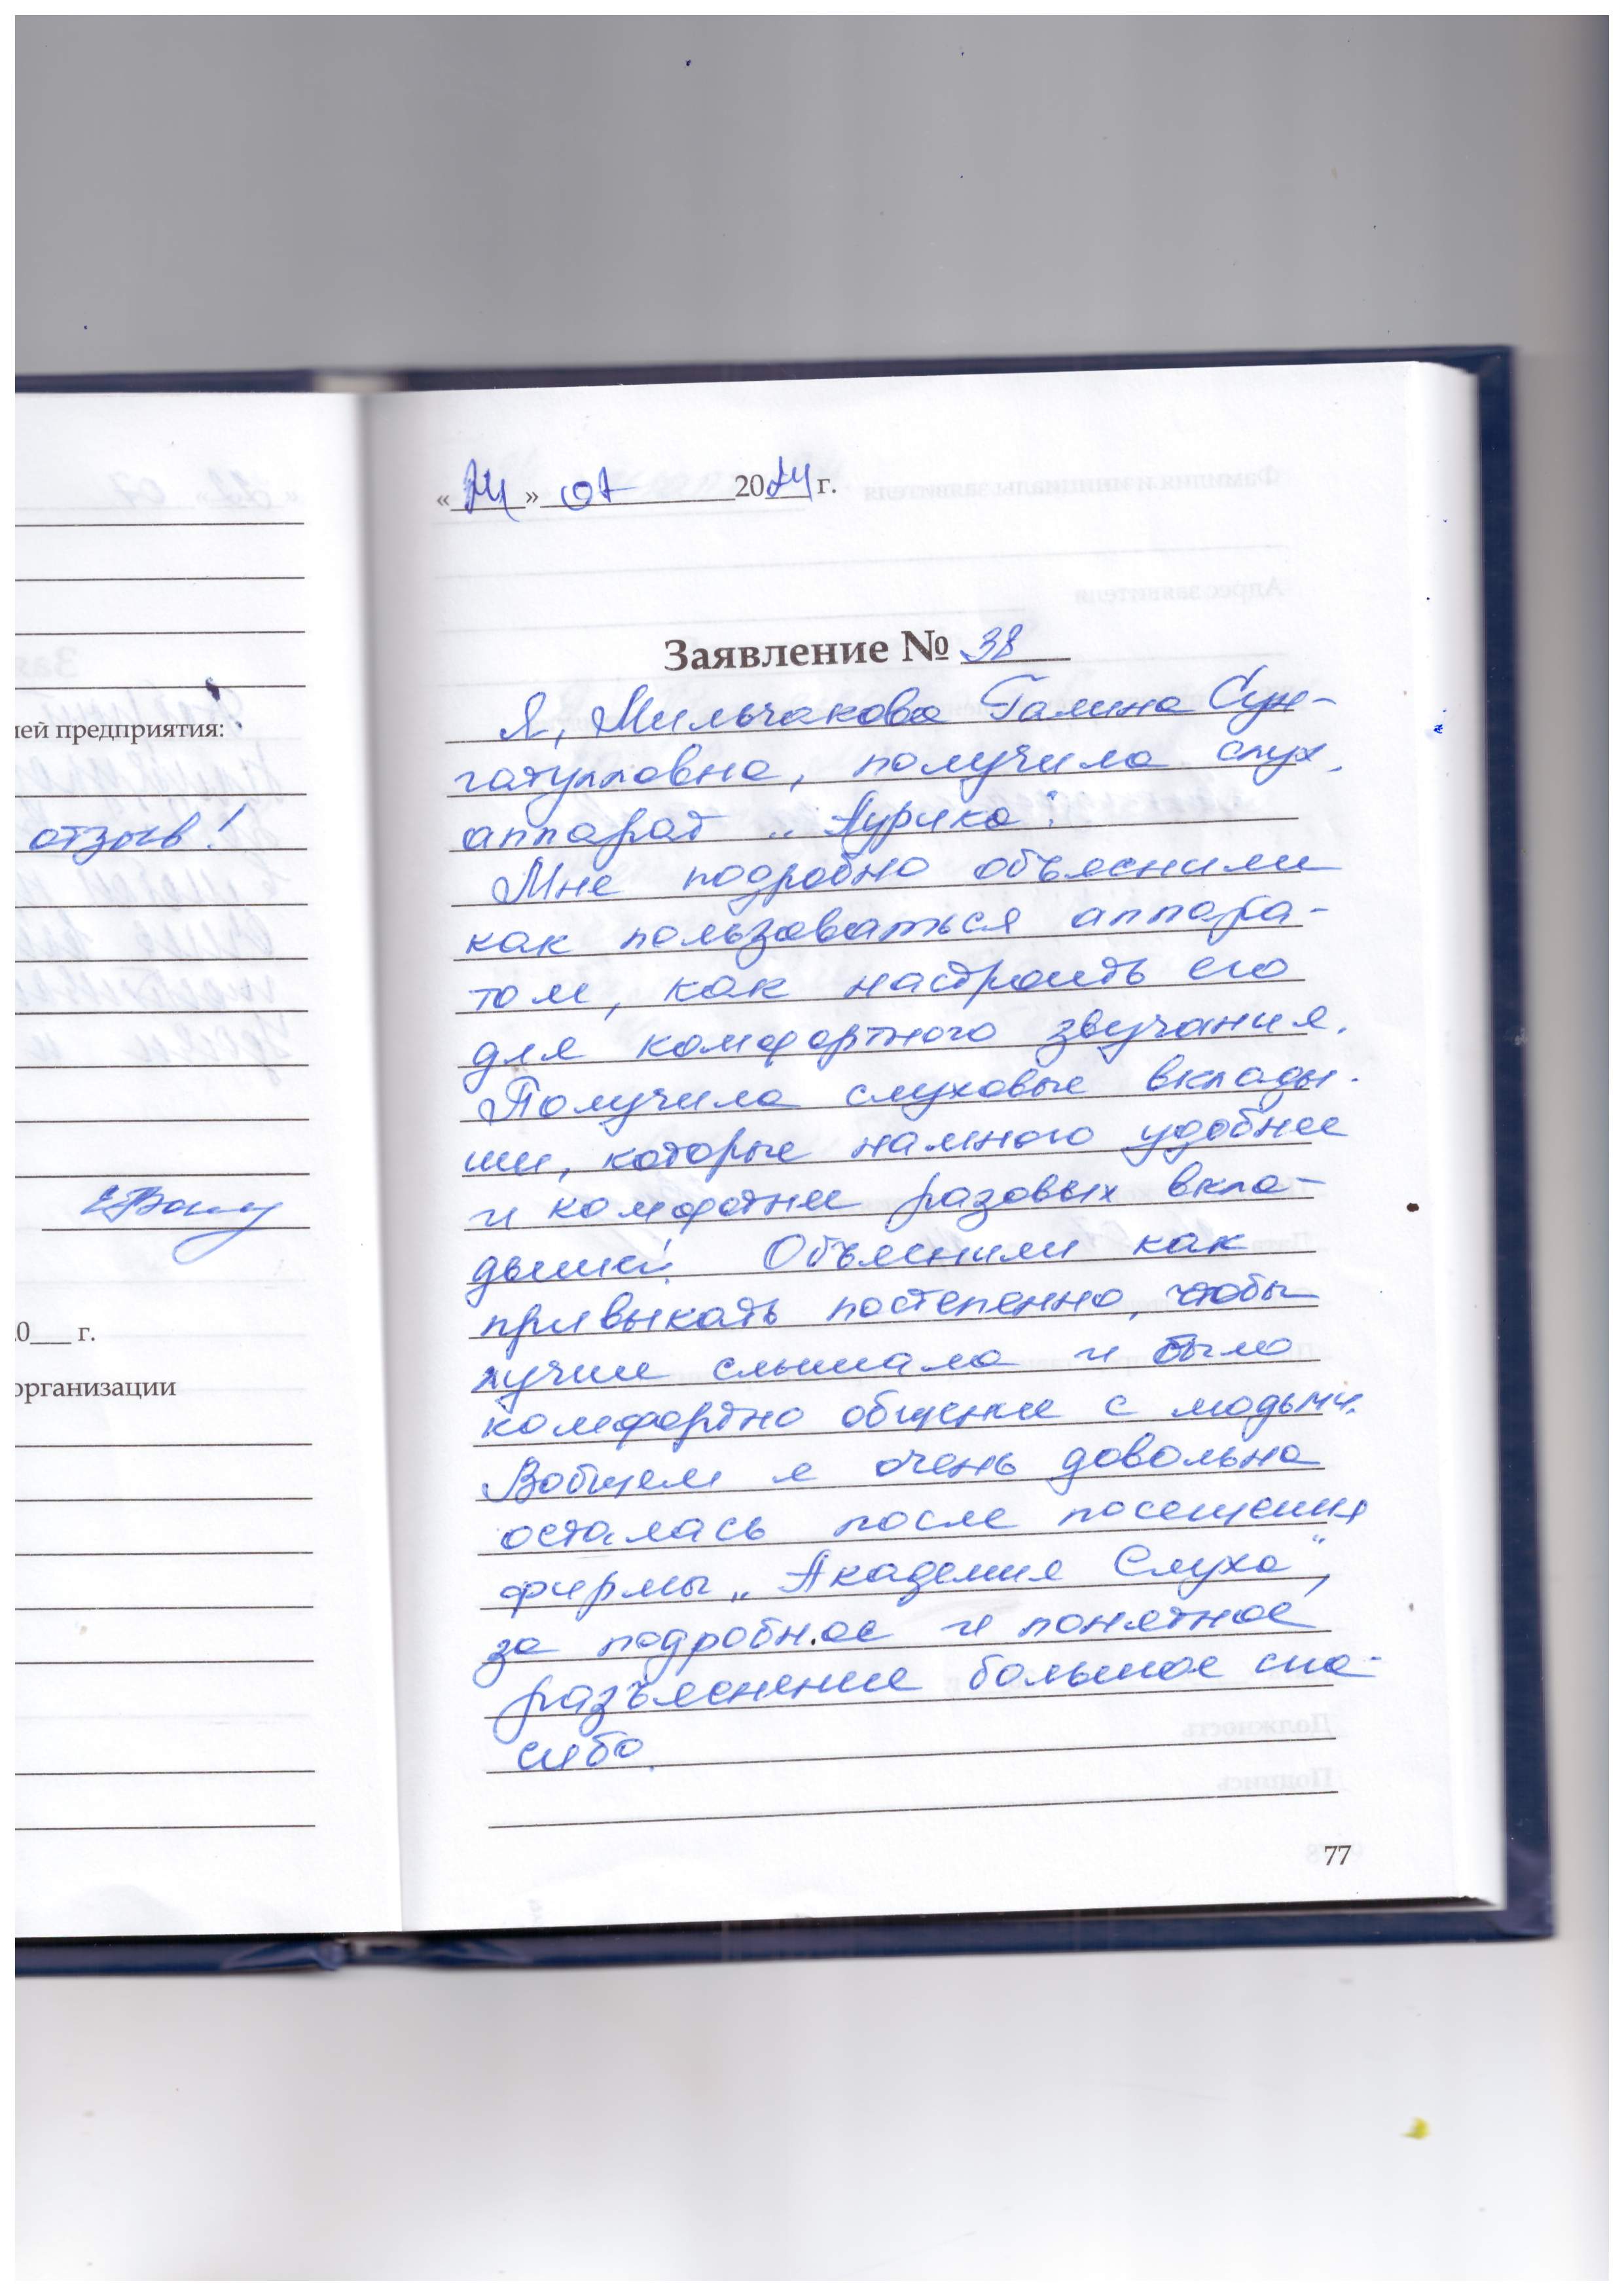 ией предприятия:
отзыв!
0___ г.
организации
«24» 07 2024 г.
Заявление № 38
Я, Мильчакова Галина Сун-
гатулловна, получила слух.
аппарат „Аурика".
Мне подробно объяснили
как пользоваться аппара-
том, как настроить его
для комфортного звучания.
Получила слуховые вклады-
ши, которые намного удобнее
и комфотнее разовых вкла-
дышей. Объяснили как
привыкать постепенно, чтобы
лучше слышала и было
комфортно общение с людьми.
Вобщем я очень довольна
осталась после посещения
фирмы „Академия Слуха",
за подробное и понятное
разъяснение большое спа-
сибо.
77